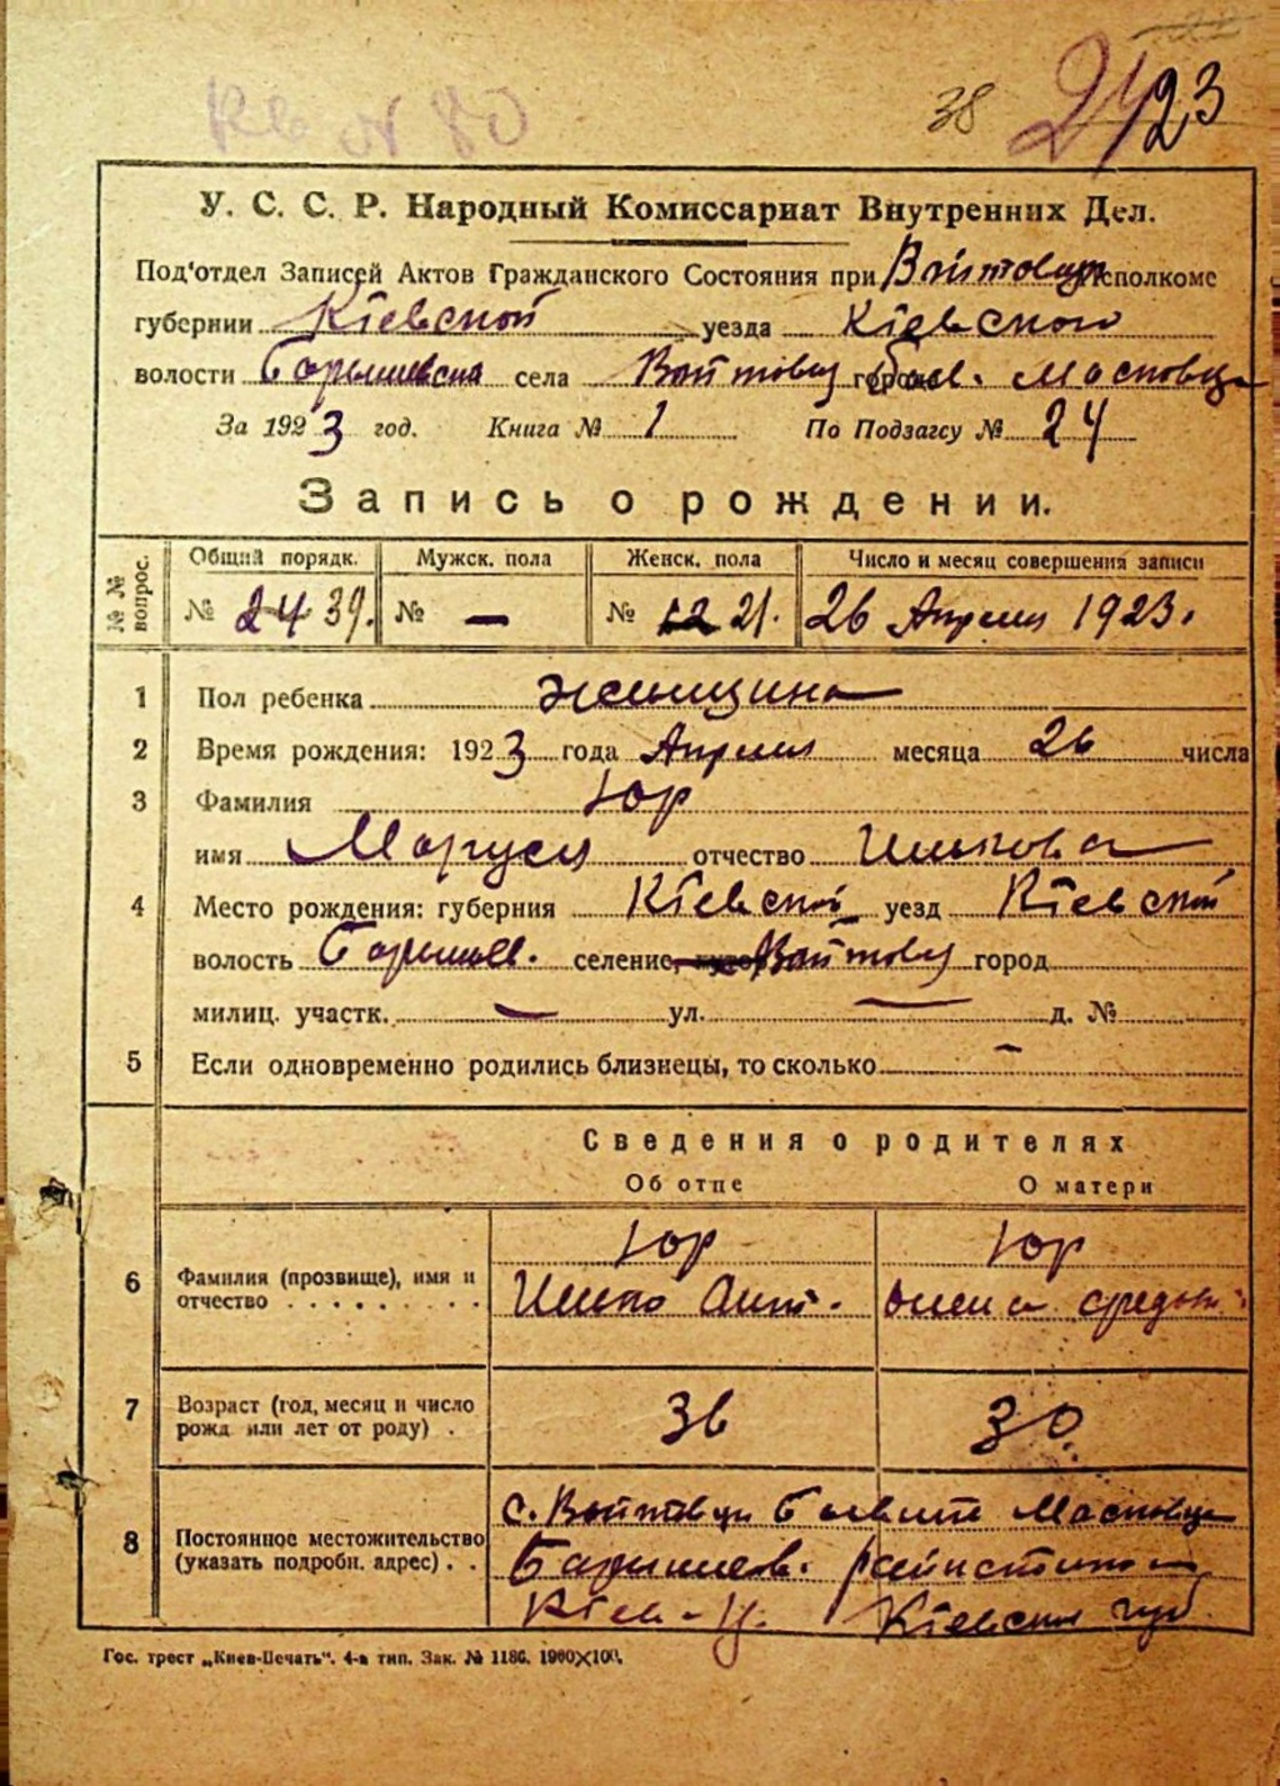 Кв № 80
38 24 23
У. С. С. Р. Народный Комиссариат Внутренних Дел.
Под'отдел Записей Актов Гражданского Состояния при Войтовцы Исполкоме
губернии Кіевской уезда Кіевского
волости Барышевская села Войтовцы города Масковцы
За 1923 год. Книга № 1 По Подзагсу № 24
Запись о рождении.
№№ вопрос.
Общий порядк. Мужск. пола Женск. пола Число и месяц совершения записи
№ 24 39. № — № 12 21. 26 Апреля 1923.
1 Пол ребенка женщина
2 Время рождения: 1923 года Апреля месяца 26 числа
3 Фамилия Юр
имя Маруся отчество Илькова
4 Место рождения: губерния Кіевской уезд Кіевской
волость Барышев. селение, хутор Войтовцы город
милиц. участк. — ул. — д. №
5 Если одновременно родились близнецы, то сколько —
Сведения о родителях
Об отце О матери
Юр Юр
6 Фамилия (прозвище), имя и
отчество Илько Ант.
7 Возраст (год, месяц и число
рожд или лет от роду) . 36 30
с. Войтовцы Масковцы
8 Постоянное местожительство
(указать подробн. адрес) . . Барышев.
Кіев-у. Кіевской губ.
Гос. трест „Киев-Печать“. 4-я тип. Зак. № 1186. 1900×100.